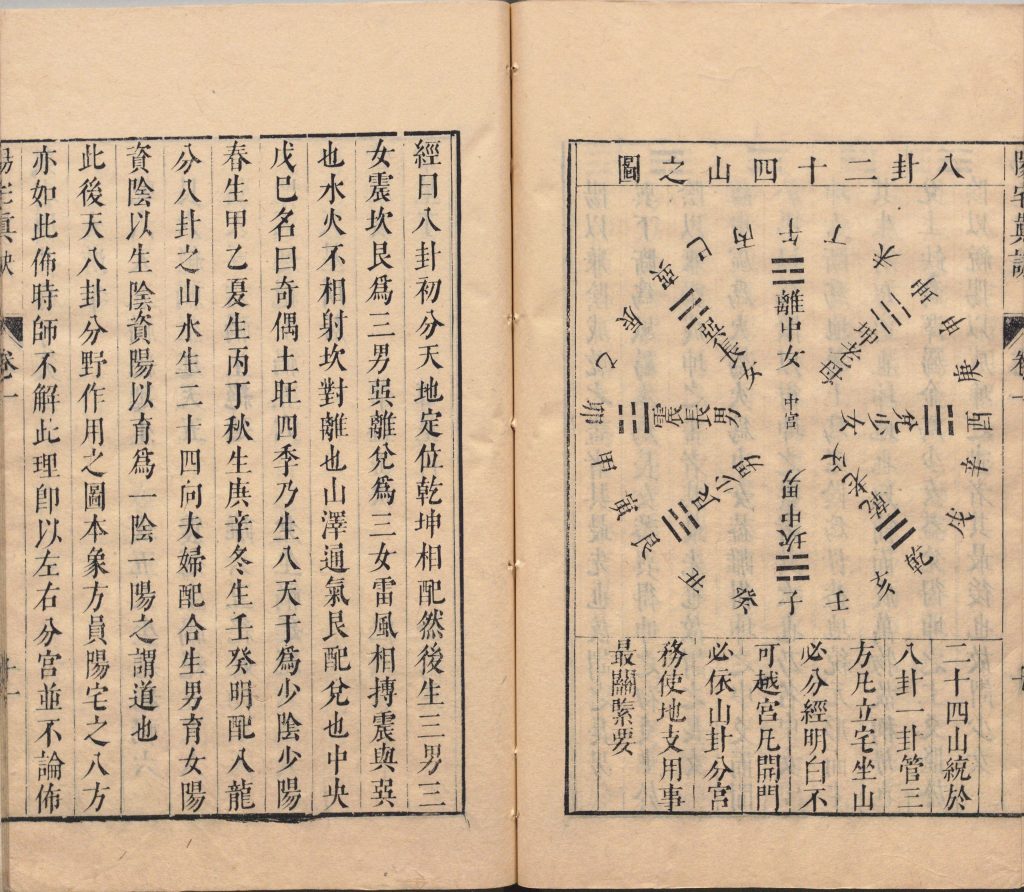 八卦二十四山之圖
午
丁
未
坤
申
庚
酉
辛
戌
乾
亥
壬
子
癸
丑
艮
寅
甲
卯
乙
辰
巽
巳
丙
離中女
坤老母
兌少女
乾老父
坎中男
艮少男
震長男
巽長女
中宮
二十四山統於
八卦一卦管三
方凡立宅坐山
必分經明白不
可越宮凡開門
必依山卦分宮
務使地支用事
最關緊要
經曰八卦初分天地定位乾坤相配然後生三男三
女震坎艮爲三男巽離兌爲三女雷風相搏震與巽
也水火不相射坎對離也山澤通氣艮配兌也中央
戊巳名曰奇偶土旺四季乃生八天于爲少陰少陽
春生甲乙夏生丙丁秋生庚辛冬生壬癸明配八龍
分八卦之山水生二十四向夫婦配合生男育女陽
資陰以生陰資陽以育爲一陰一陽之謂道也
此後天八卦分野作用之圖本象方員陽宅之八方
亦如此佈時師不解此理卽以左右分宮並不論佈
卷一